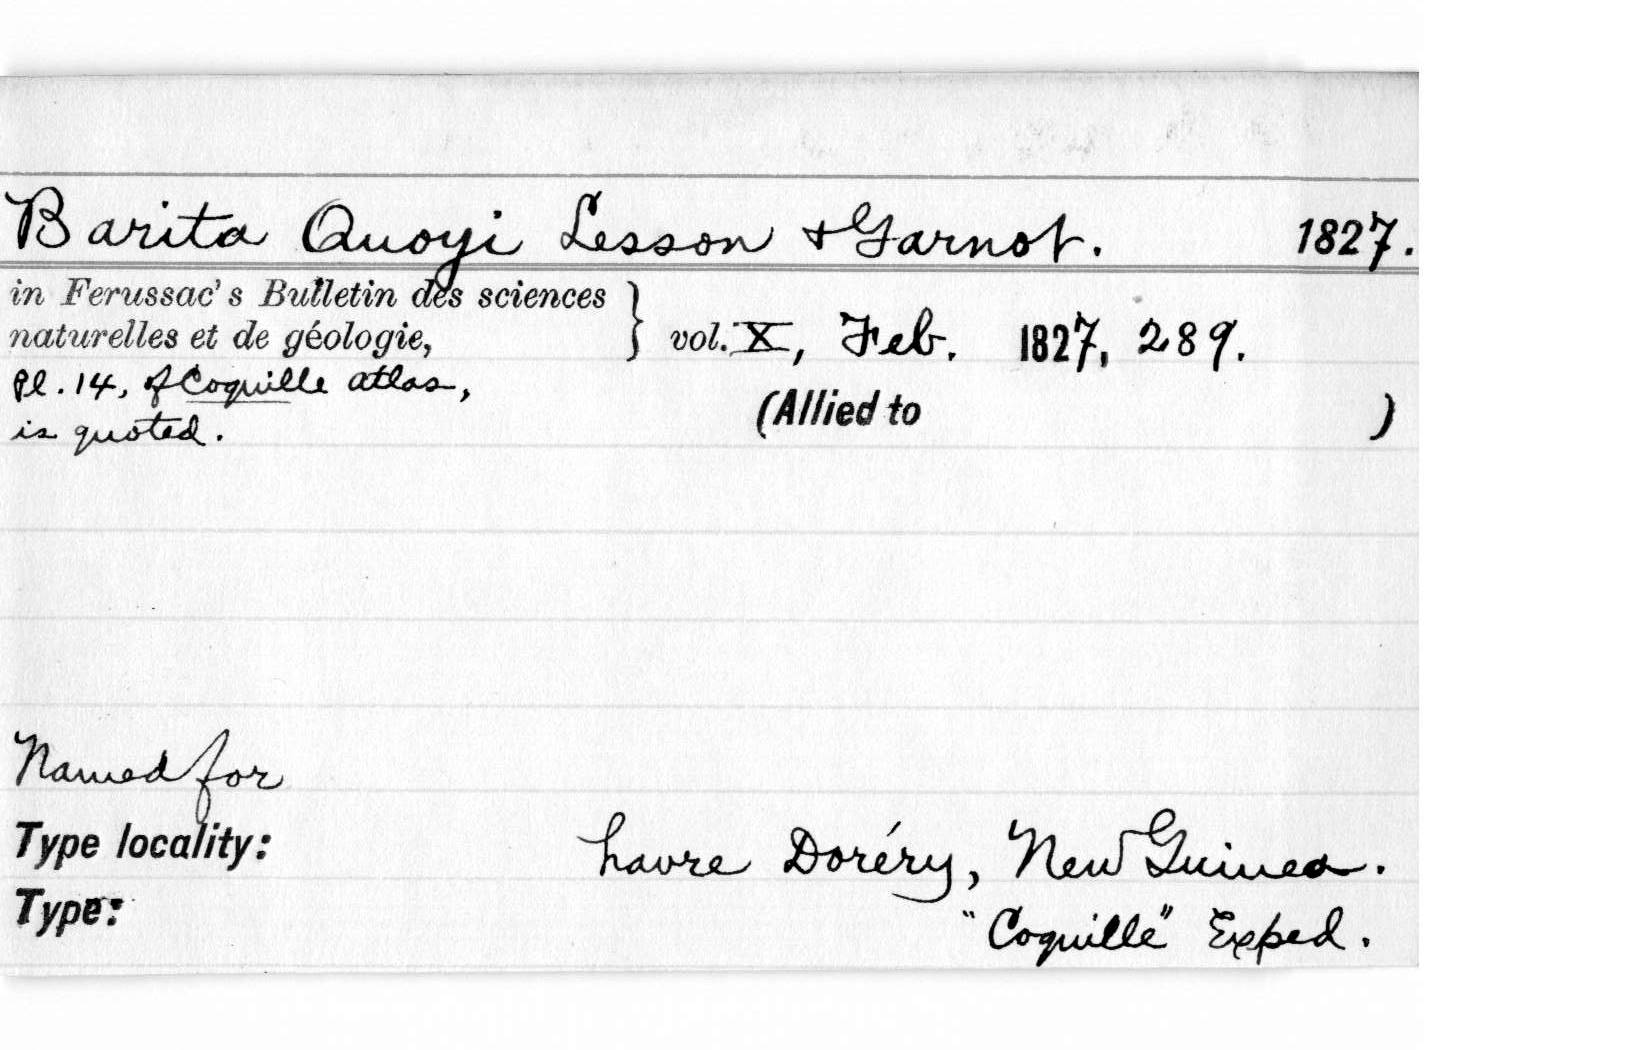 Barita Quoyi Lesson & Garnot. 1827.
in Ferussac's Bulletin des sciences
naturelles et de géologie, } vol. X, Feb. 1827, 289.
Pl. 14, of Coquille atlas,
(Allied to )
is quoted.
Named for
Type locality: havre Doréry, New Guinea.
Type:
"Coquille" Exped.